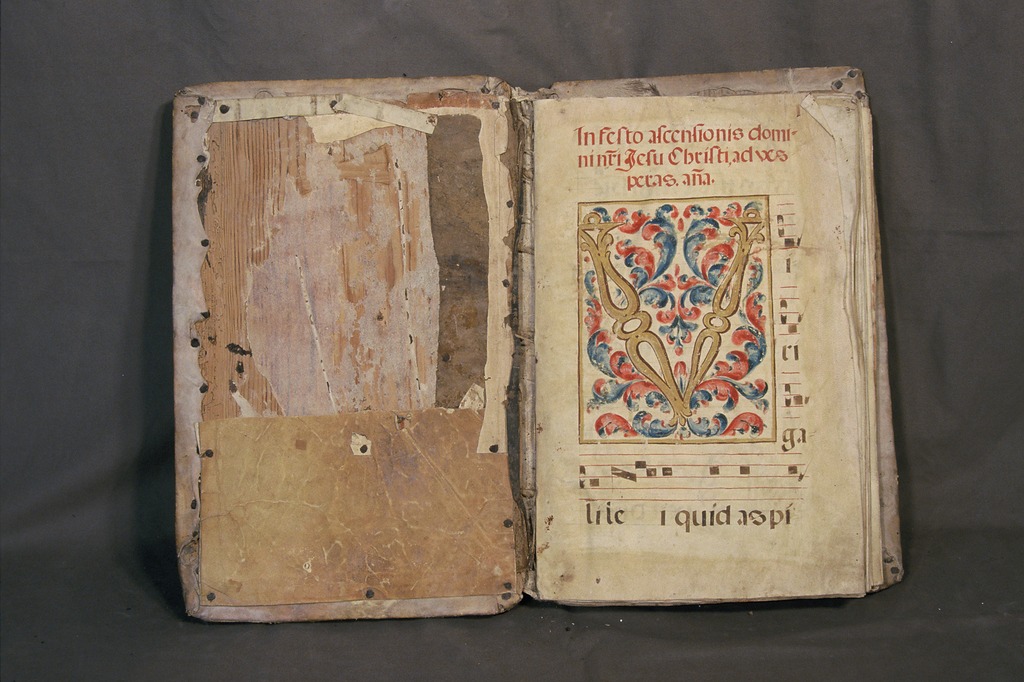 In festo ascensionis domi-
ni nr̃i Jesu Christi, ad ves
peras. aña.
V
i
ri
ga
li le i quid aspi